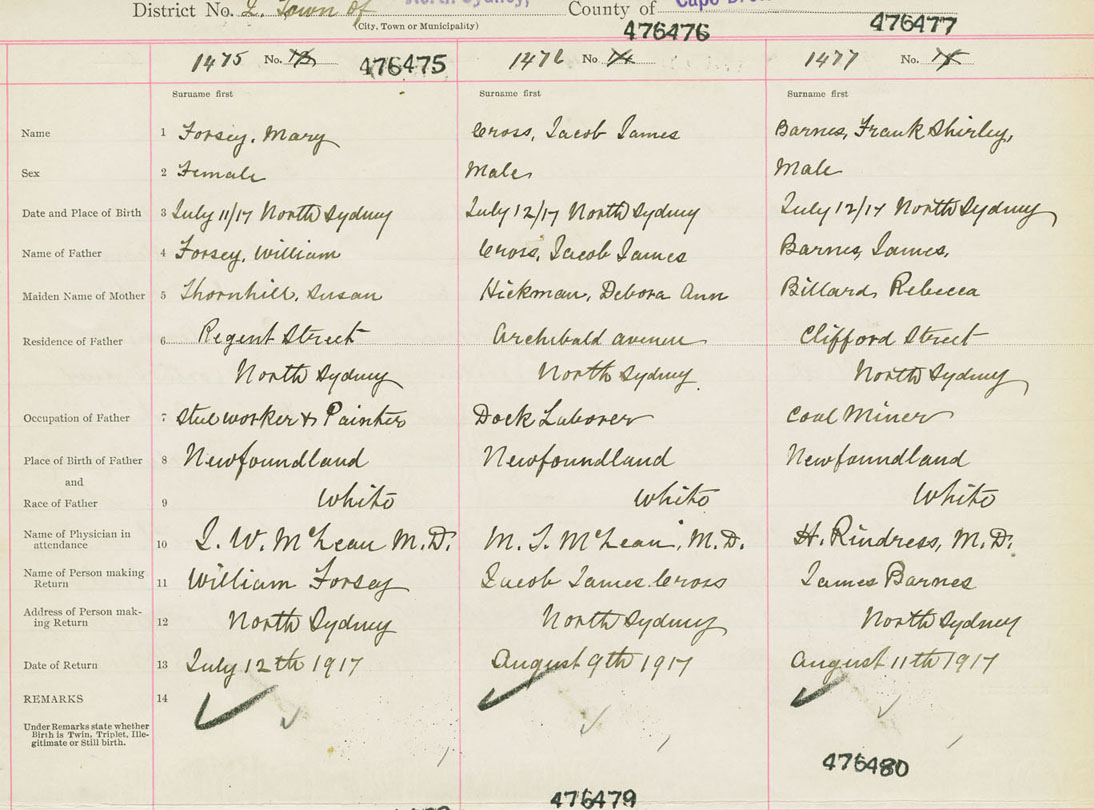 District No. 2. Town of North Sydney, County of Cape Breton
(City, Town or Municipality)
476476 476477
1475 No. 73 476475 1476 No 74 1477 No. 75
Surname first Surname first Surname first
Name 1 Forsey, Mary Cross, Jacob James Barnes, Frank Shirley,
Sex 2 Female Male Male
Date and Place of Birth 3 July 11/17 North Sydney July 12/17 North Sydney July 12/17 North Sydney
Name of Father 4 Forsey, William Cross, Jacob James Barnes, James,
Maiden Name of Mother 5 Thornhill, Susan Hickman, Debora Ann Billard, Rebecca
Residence of Father 6 Regent Street Archibald avenue Clifford Street
North Sydney North Sydney North Sydney
Occupation of Father 7 Steelworker & Painter Dock Laborer Coal Miner
Place of Birth of Father 8 Newfoundland Newfoundland Newfoundland
and
Race of Father 9 White White White
Name of Physician in
attendance 10 L. W. McLean M.D. M. T. McLean, M.D. H. Rindress, M.D.
Name of Person making
Return 11 William Forsey Jacob James Cross James Barnes
Address of Person mak-
ing Return 12 North Sydney North Sydney North Sydney
Date of Return 13 July 12th 1917 August 9th 1917 August 11th 1917
REMARKS 14
Under Remarks state whether
Birth is Twin, Triplet, Ille-
gitimate or Still birth.
476480
476479